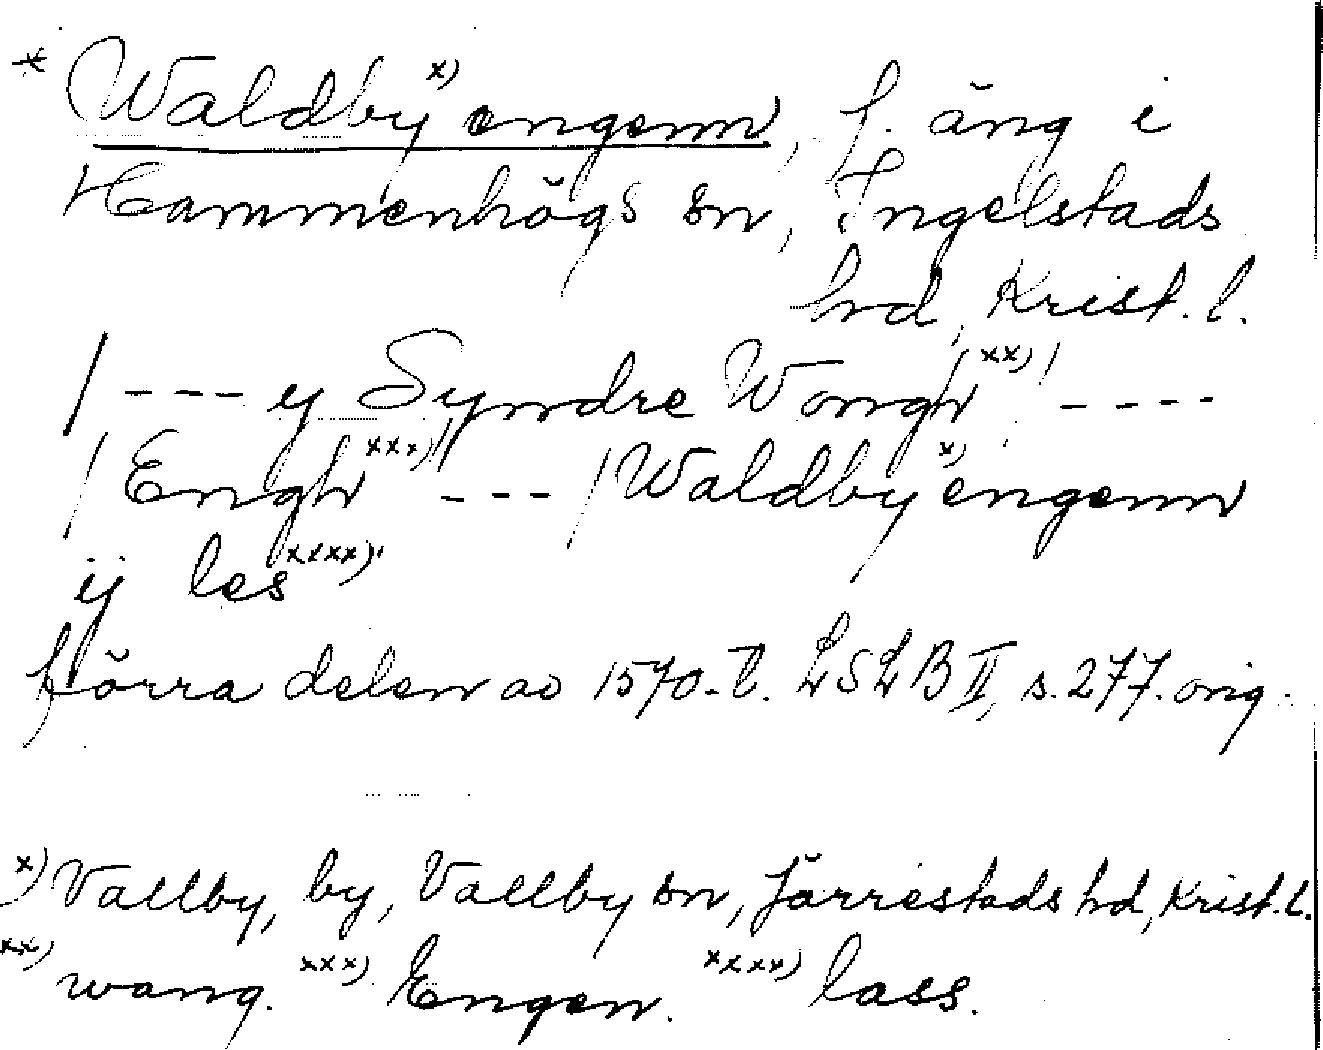 * Waldby x) engenn, f. äng i
Hammenhögs sn, Ingelstads
hd, Krist. l.
/ --- y Syndre Wongh xx) / ----
/ Engh xxx) / --- / Waldby x) engenn
ij les xxxx)
förra delen av 1570-t. LSLB II, s. 277. orig.
x) Vallby, by, Vallby sn, Järrestads hd, Krist. l.
xx) wang. xxx) Engen. xxxx) lass.